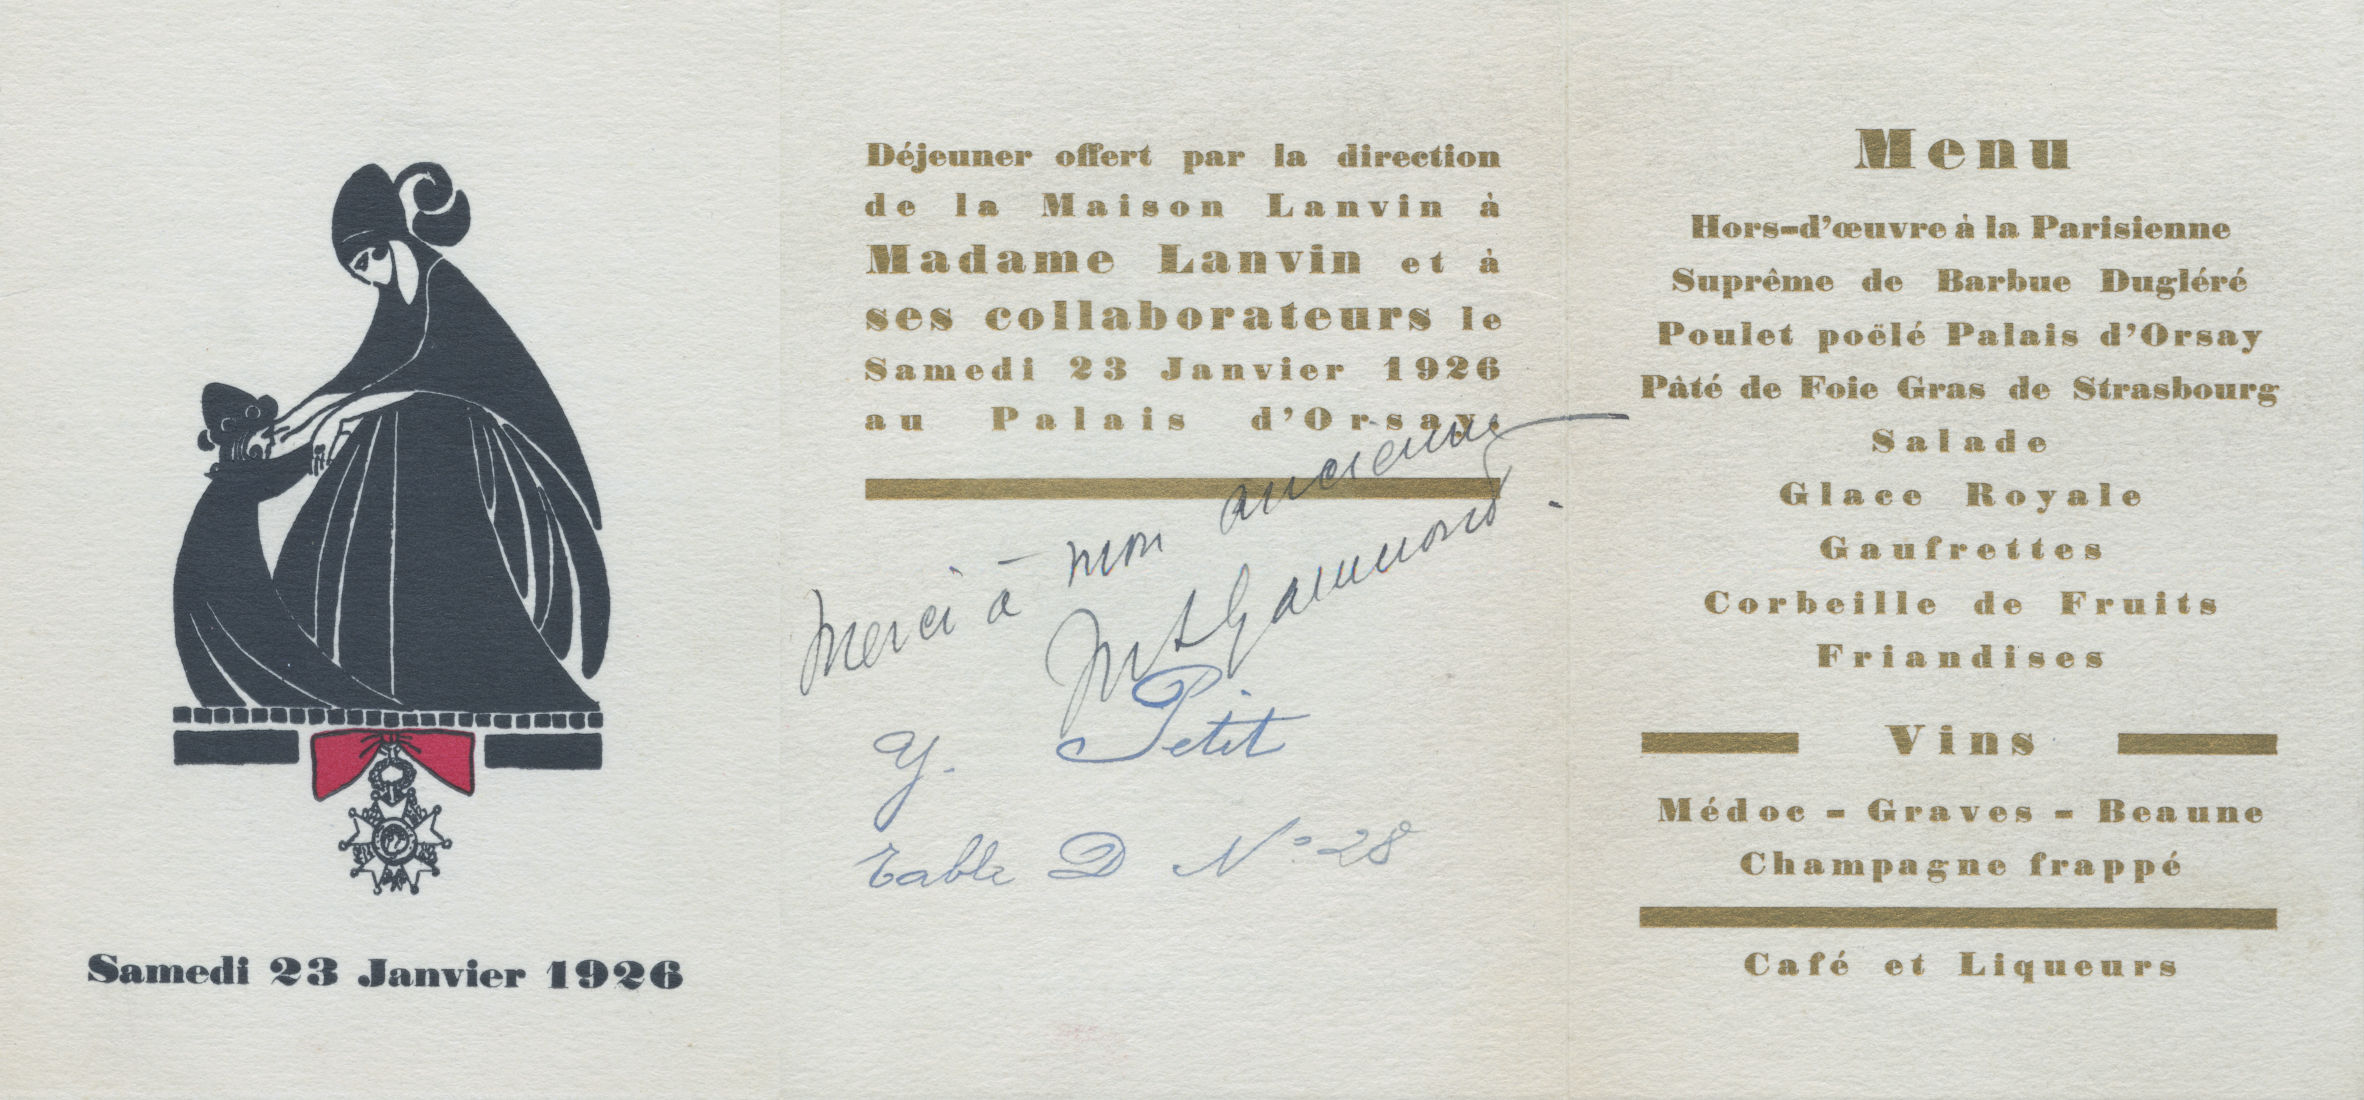 Samedi 23 Janvier 1926
Déjeuner offert par la direction
de la Maison Lanvin à
Madame Lanvin et à
ses collaborateurs le
Samedi 23 Janvier 1926
au Palais d'Orsay.
Merci à mon ancienne
Y. Petit
Table D N° 28
Menu
Hors-d'œuvre à la Parisienne
Suprême de Barbue Dugléré
Poulet poëlé Palais d'Orsay
Pâté de Foie Gras de Strasbourg
Salade
Glace Royale
Gaufrettes
Corbeille de Fruits
Friandises
Vins
Médoc - Graves - Beaune
Champagne frappé
Café et Liqueurs